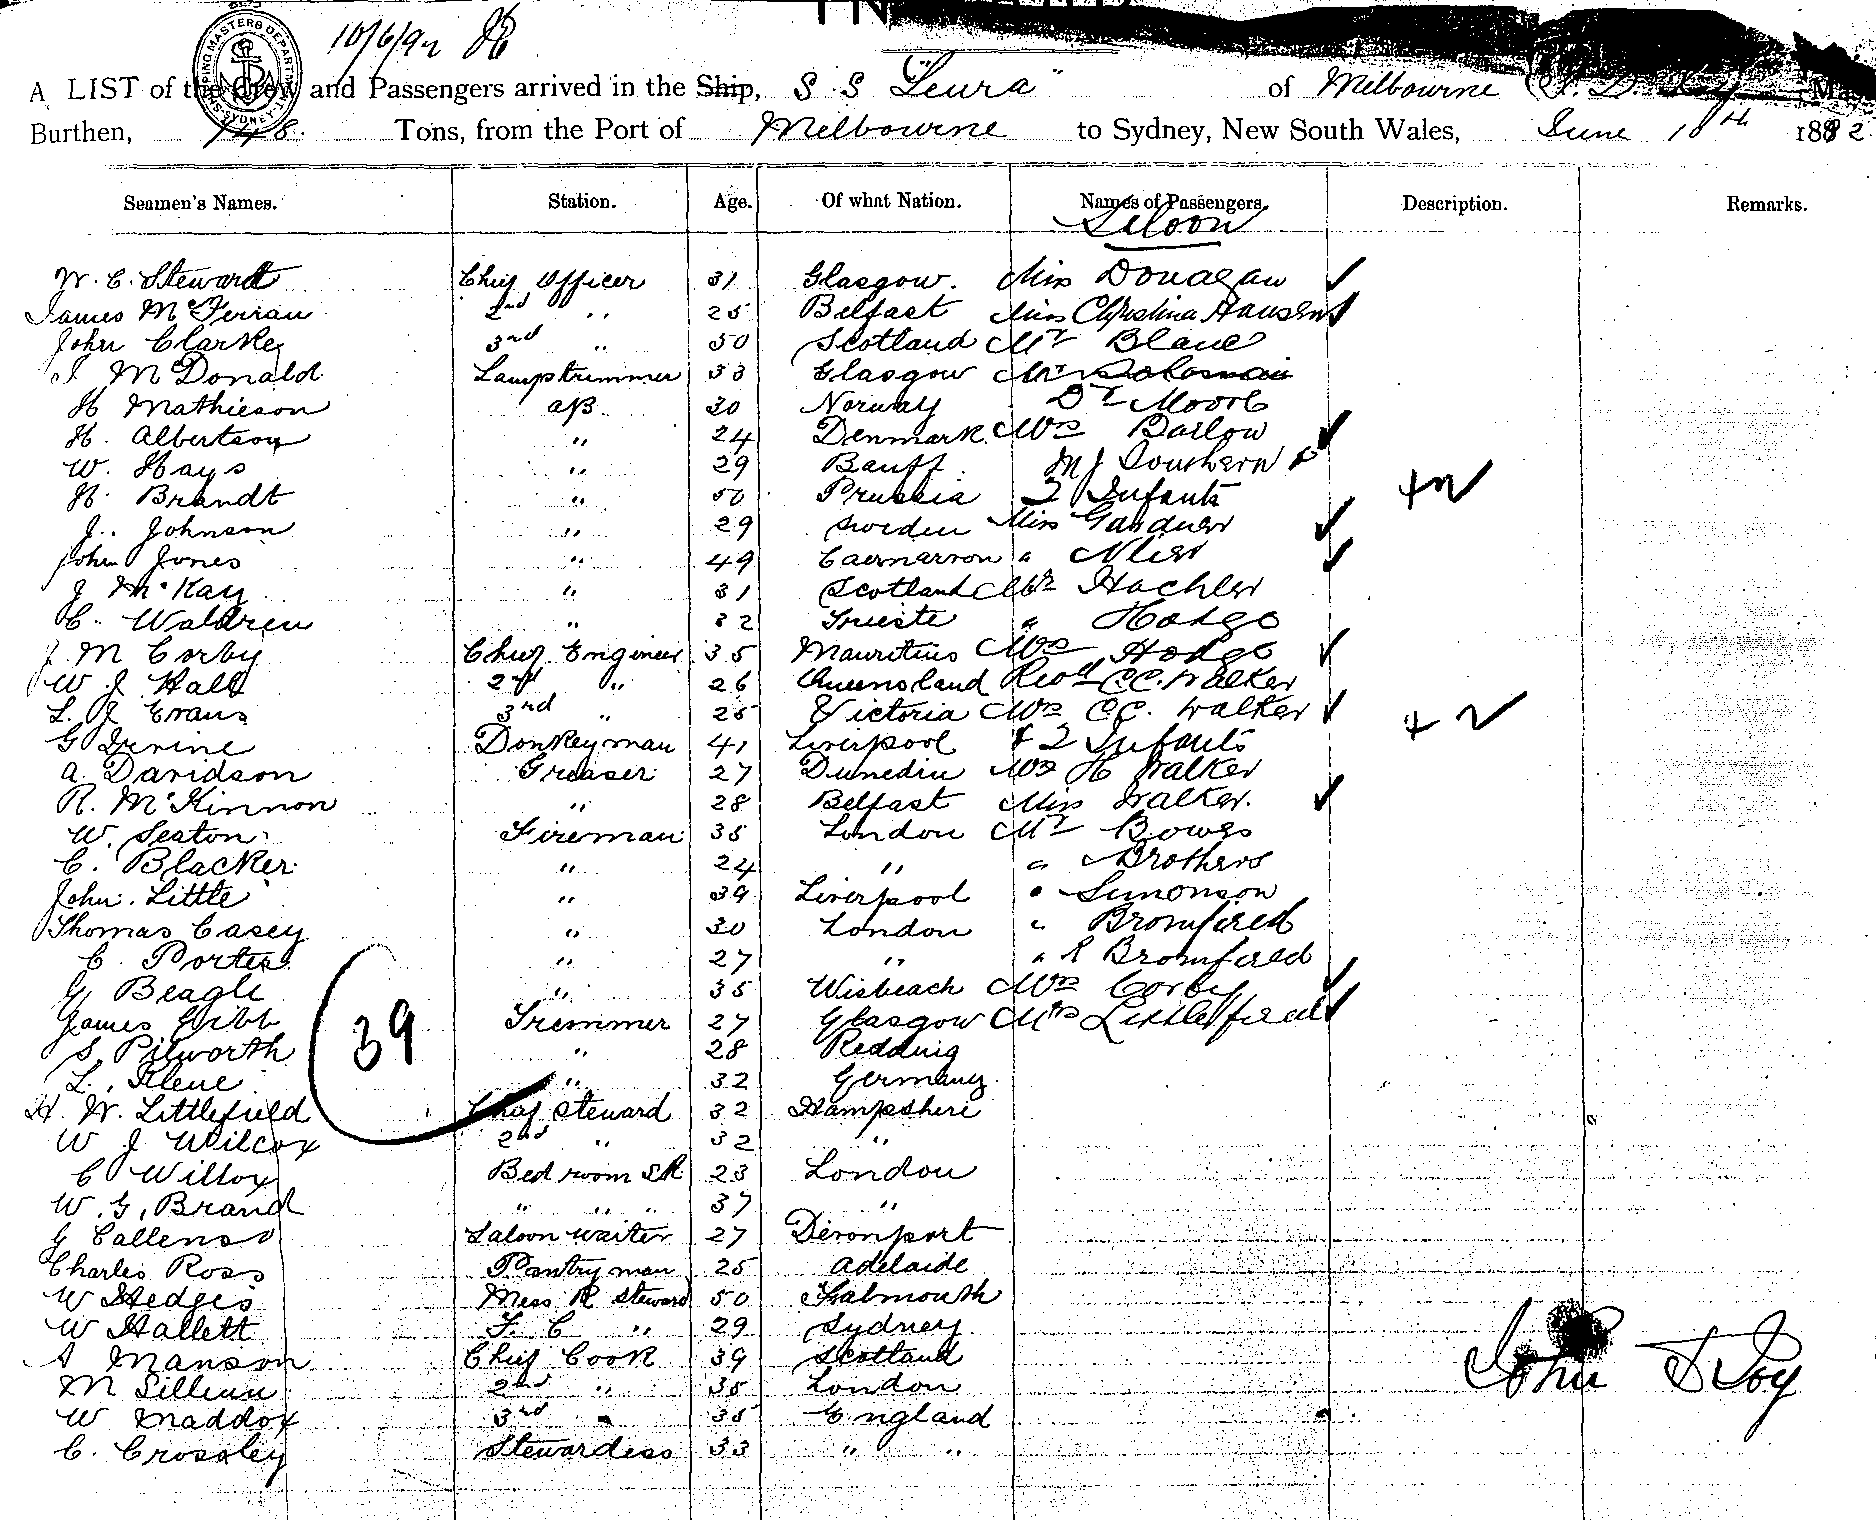 10/6/92
A LIST of the Crew and Passengers arrived in the Ship, S S "Leura" of Melbourne
Burthen, Tons, from the Port of Melbourne to Sydney, New South Wales, June 10th 1892
Seamen's Names. Station. Age. Of what Nation. Names of Passengers. Description. Remarks.
Saloon
W. C. Steward Chief Officer 31 Glasgow. Miss Donagan
James McFerran 2nd " 25 Belfast Miss Christina Hansen
John Clarke 3rd " 50 Scotland Mr Blane
McDonald Lamptrimmer 33 Glasgow Mr
H Mathieson AB 30 Norway Dr Moore
H. Albertson " 24 Denmark. Mrs Barlow
W. Hays " 29 Banff. Southern
H. Brandt " 50 Prussia 2 Infants +2
J. Johnson " 29 Sweden Miss Gardner
John Jones " 49 Caernarvon "
J McKay " 31 Scotland Mr Hachler
C. Waldren " 32 Trieste " Hodge
J M Corby Chief Engineer 35 Mauritius Mrs Hodge
W J Hall 2nd " 26 Queensland Revd C.C. Walker
L. J Evans 3rd " 25 Victoria Mrs C.C. Walker + 2
G Irvine Donkeyman 41 Liverpool & 2 Infants
A. Davidson Greaser 27 Dunedin Mrs H Walker
R. McKinnon " 28 Belfast Miss Walker.
W. Seaton Fireman 35 London Mr Bowes
C. Blacker " 24 " " Brothers
John. Little " 39 Liverpool " Simonson
Thomas Casey " 30 London " Bromfired
C. Porter " 27 " " R Bromfield
G. Beagle " 35 Wisbeach Mrs Corby
James Gibb Tremmer 27 Glasgow Mrs Littlefield
39
S. Pilworth " 28 Redding
L. Klene " 32 Germany.
H. W. Littlefield Chief Steward 32 Hampshire
W J Wilcox 2nd " 32 "
C Wilcox Bed room SR 23 London
W. G. Brand " " " 37 "
G Callenso Saloon waiter 27 Devonport
Charles Ross Pantryman 25 Adelaide
W Hedges Mess R Steward 50 Falmouth
W Hallett F. C " 29 Sydney
A Manson Chief Cook 39 Scotland
M 2nd " 35 London
W Maddox 3rd " 35 England
C. Crossley Stewardess 33 " "
John